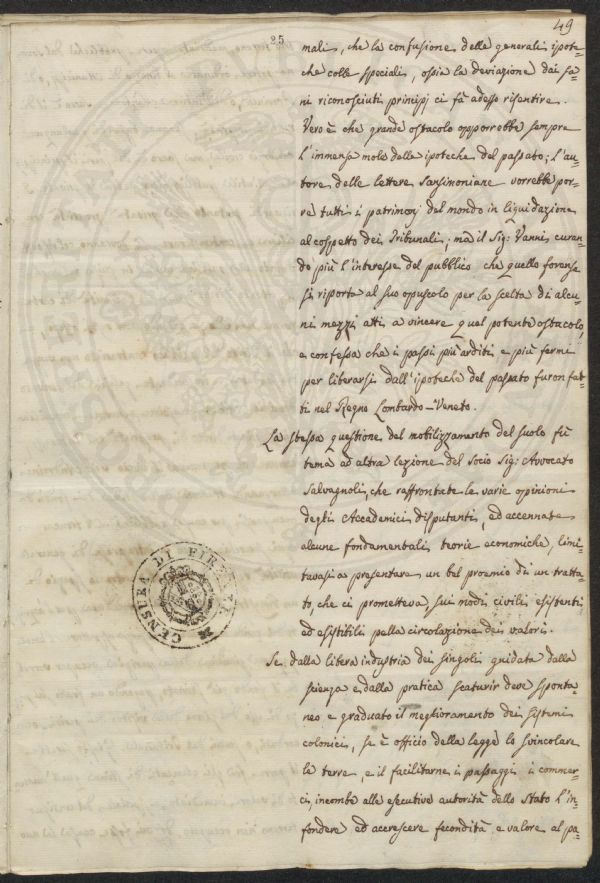 49
25
mali, che la confusione delle generali ipote-
che colle speciali, ossia la deviazione dai sa-
ni riconosciuti principj ci fà adesso risentire.
Vero è che grande ostacolo opporrebbe sempre
l'immensa mole delle ipoteche del passato; l'au-
tore delle lettere Sansimoniane vorrebbe por-
re tutti i patrimonj del mondo in liquidazione
al cospetto dei Tribunali; ma il Sig: Vanni curan-
do più l'interesse del pubblico che quello forense
si riporta al suo opuscolo per la scelta di alcu-
ni mezzi atti a vincere quel potente ostacolo,
e confessa che i passi più arditi e più fermi
per liberarsi dall'ipoteche del passato furon fat-
ti nel Regno Lombardo-Veneto.
La stessa questione del mobilizzamento del suolo fù
tema ad altra lezione del Socio Sig: Avvocato
Salvagnoli, che raffrontate le varie opinioni
degli Accademici disputanti, ed accennate
alcune fondamentali teorie economiche, limi-
tavasi a presentare un bel proemio di un tratta-
to, che ci prometteva, sui modi civili esistenti
ed esistibili pella circolazione dei valori.
Se dalla libera industria dei singoli guidata dalla
scienza e dalla pratica scaturir deve sponta-
neo e graduato il meglioramento dei sistemi
colonici, se è officio della legge lo svincolare
le terre, e il facilitarne i passaggi i commer-
ci, incombe alle esecutive autorità dello Stato l'in-
fondere ed accrescere fecondità e valore al pa-
CENSURA DI FIRENZE